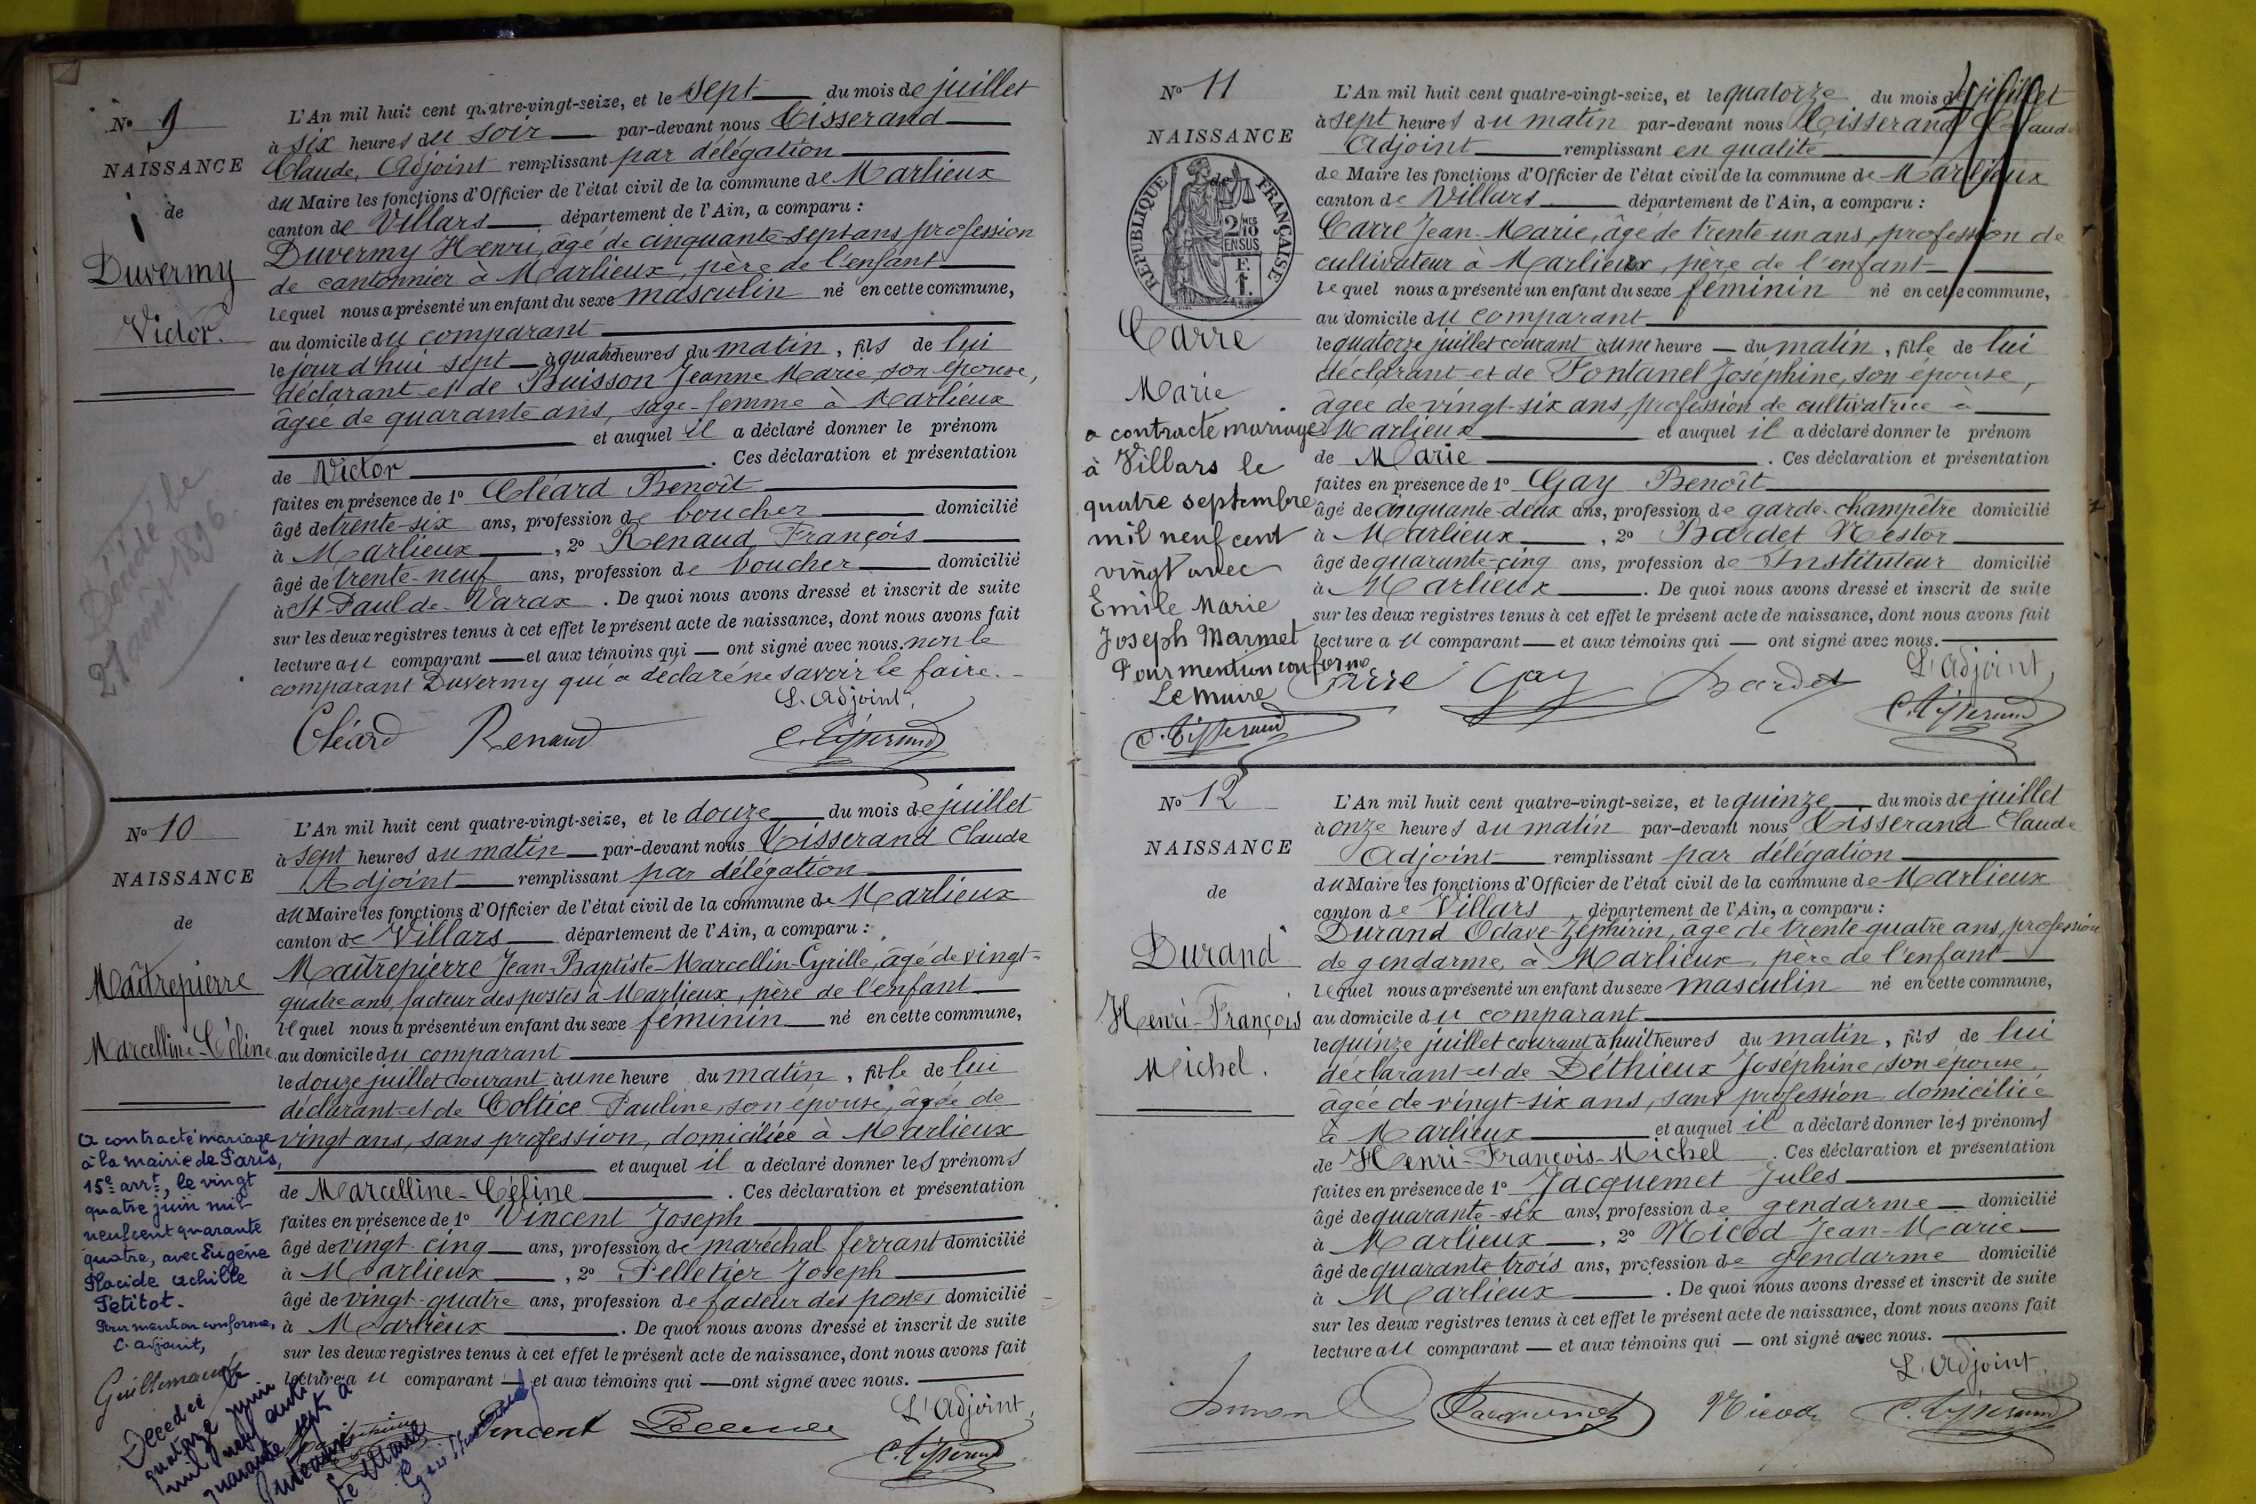 No 9
NAISSANCE
de
Duvermy
Victor.
Décédé le
27 août 1896.
L'An mil huit cent quatre-vingt-seize, et le sept du mois de juillet
à six heures du soir par-devant nous Tisserand
Claude, Adjoint remplissant par délégation
du Maire les fonctions d'Officier de l'état civil de la commune de Marlieux
canton de Villars département de l'Ain, a comparu :
Duvermy Henri, âgé de cinquante-sept ans profession
de cantonnier à Marlieux, père de l'enfant
lequel nous a présenté un enfant du sexe masculin né en cette commune,
au domicile du comparant
le jourd'hui sept à quatre heures du matin, fils de lui
déclarant et de Buisson Jeanne Marie son épouse,
âgée de quarante ans, sage-femme à Marlieux
et auquel il a déclaré donner le prénom
de Victor . Ces déclaration et présentation
faites en présence de 1° Cléard Benoît
âgé de trente-six ans, profession de boucher domicilié
à Marlieux , 2° Renaud François
âgé de trente-neuf ans, profession de boucher domicilié
à St Paul de Varax . De quoi nous avons dressé et inscrit de suite
sur les deux registres tenus à cet effet le présent acte de naissance, dont nous avons fait
lecture au comparant et aux témoins qui ont signé avec nous. non le
comparant Duvermy qui a déclaré ne savoir le faire.
L'Adjoint,
Cléard Renaud C. Tisserand
No 10
NAISSANCE
de
Maîtrepierre
Marcelline-Céline
a contracté mariage
à la mairie de Paris,
15e arrt, le vingt
quatre juin mil
neuf cent quarante
quatre, avec Eugène
Placide Achille
Petitot.
Pour mention conforme,
L'adjoint,
Guillemaud
Décédée le
quatorze juin
mil neuf cent
quarante sept à
Le Maire
L'An mil huit cent quatre-vingt-seize, et le douze du mois de juillet
à sept heures du matin par-devant nous Tisserand Claude
Adjoint remplissant par délégation
du Maire les fonctions d'Officier de l'état civil de la commune de Marlieux
canton de Villars département de l'Ain, a comparu :
Maîtrepierre Jean-Baptiste-Marcellin-Cyrille, âgé de vingt-
quatre ans, facteur des postes à Marlieux, père de l'enfant
lequel nous a présenté un enfant du sexe féminin né en cette commune,
au domicile du comparant
le douze juillet courant à une heure du matin, fille de lui
déclarant et de Coltice Pauline, son épouse, âgée de
vingt ans, sans profession, domiciliée à Marlieux
et auquel il a déclaré donner les prénoms
de Marcelline-Céline . Ces déclaration et présentation
faites en présence de 1° Vincent Joseph
âgé de vingt-cinq ans, profession de maréchal ferrant domicilié
à Marlieux , 2° Pelletier Joseph
âgé de vingt-quatre ans, profession de facteur des postes domicilié
à Marlieux . De quoi nous avons dressé et inscrit de suite
sur les deux registres tenus à cet effet le présent acte de naissance, dont nous avons fait
lecture au comparant et aux témoins qui ont signé avec nous.
L'Adjoint,
Vincent C. Tisserand
No 11
NAISSANCE
RÉPUBLIQUE FRANÇAISE
2/10 EN SUS
Carre
Marie
a contracté mariage
à Villars le
quatre septembre
mil neuf cent
vingt avec
Emile Marie
Joseph Marmet
Pour mention conforme
Le Maire
C. Tisserand
L'An mil huit cent quatre-vingt-seize, et le quatorze du mois de juillet
à sept heures du matin par-devant nous Tisserand Claude
Adjoint remplissant en qualité
de Maire les fonctions d'Officier de l'état civil de la commune de Marlieux
canton de Villars département de l'Ain, a comparu :
Carre Jean-Marie, âgé de trente-un ans, profession de
cultivateur à Marlieux, père de l'enfant
lequel nous a présenté un enfant du sexe féminin né en cette commune,
au domicile du comparant
le quatorze juillet courant à une heure du matin, fille de lui
déclarant et de Fontanel Joséphine, son épouse,
âgée de vingt-six ans, profession de cultivatrice à
Marlieux et auquel il a déclaré donner le prénom
de Marie . Ces déclaration et présentation
faites en présence de 1° Gay Benoît
âgé de cinquante-deux ans, profession de garde-champêtre domicilié
à Marlieux , 2° Bardet Nestor
âgé de quarante-cinq ans, profession de Instituteur domicilié
à Marlieux . De quoi nous avons dressé et inscrit de suite
sur les deux registres tenus à cet effet le présent acte de naissance, dont nous avons fait
lecture au comparant et aux témoins qui ont signé avec nous.
L'Adjoint,
Carre Gay Bardet C. Tisserand
No 12
NAISSANCE
de
Durand
Henri-François
Michel.
L'An mil huit cent quatre-vingt-seize, et le quinze du mois de juillet
à onze heures du matin par-devant nous Tisserand Claude
Adjoint remplissant par délégation
du Maire les fonctions d'Officier de l'état civil de la commune de Marlieux
canton de Villars, département de l'Ain, a comparu :
Durand Octave-Zéphirin, âgé de trente quatre ans, profession
de gendarme, à Marlieux, père de l'enfant
lequel nous a présenté un enfant du sexe masculin né en cette commune,
au domicile du comparant
le quinze juillet courant à huit heures du matin, fils de lui
déclarant et de Déthieux Joséphine, son épouse,
âgée de vingt-six ans, sans profession domiciliée
à Marlieux et auquel il a déclaré donner les prénoms
de Henri-François-Michel . Ces déclaration et présentation
faites en présence de 1° Jacquemet Jules
âgé de quarante-six ans, profession de gendarme domicilié
à Marlieux , 2° Nicod Jean-Marie
âgé de quarante trois ans, profession de gendarme domicilié
à Marlieux . De quoi nous avons dressé et inscrit de suite
sur les deux registres tenus à cet effet le présent acte de naissance, dont nous avons fait
lecture au comparant et aux témoins qui ont signé avec nous.
L'Adjoint,
Durand Jacquemet Nicod C. Tisserand